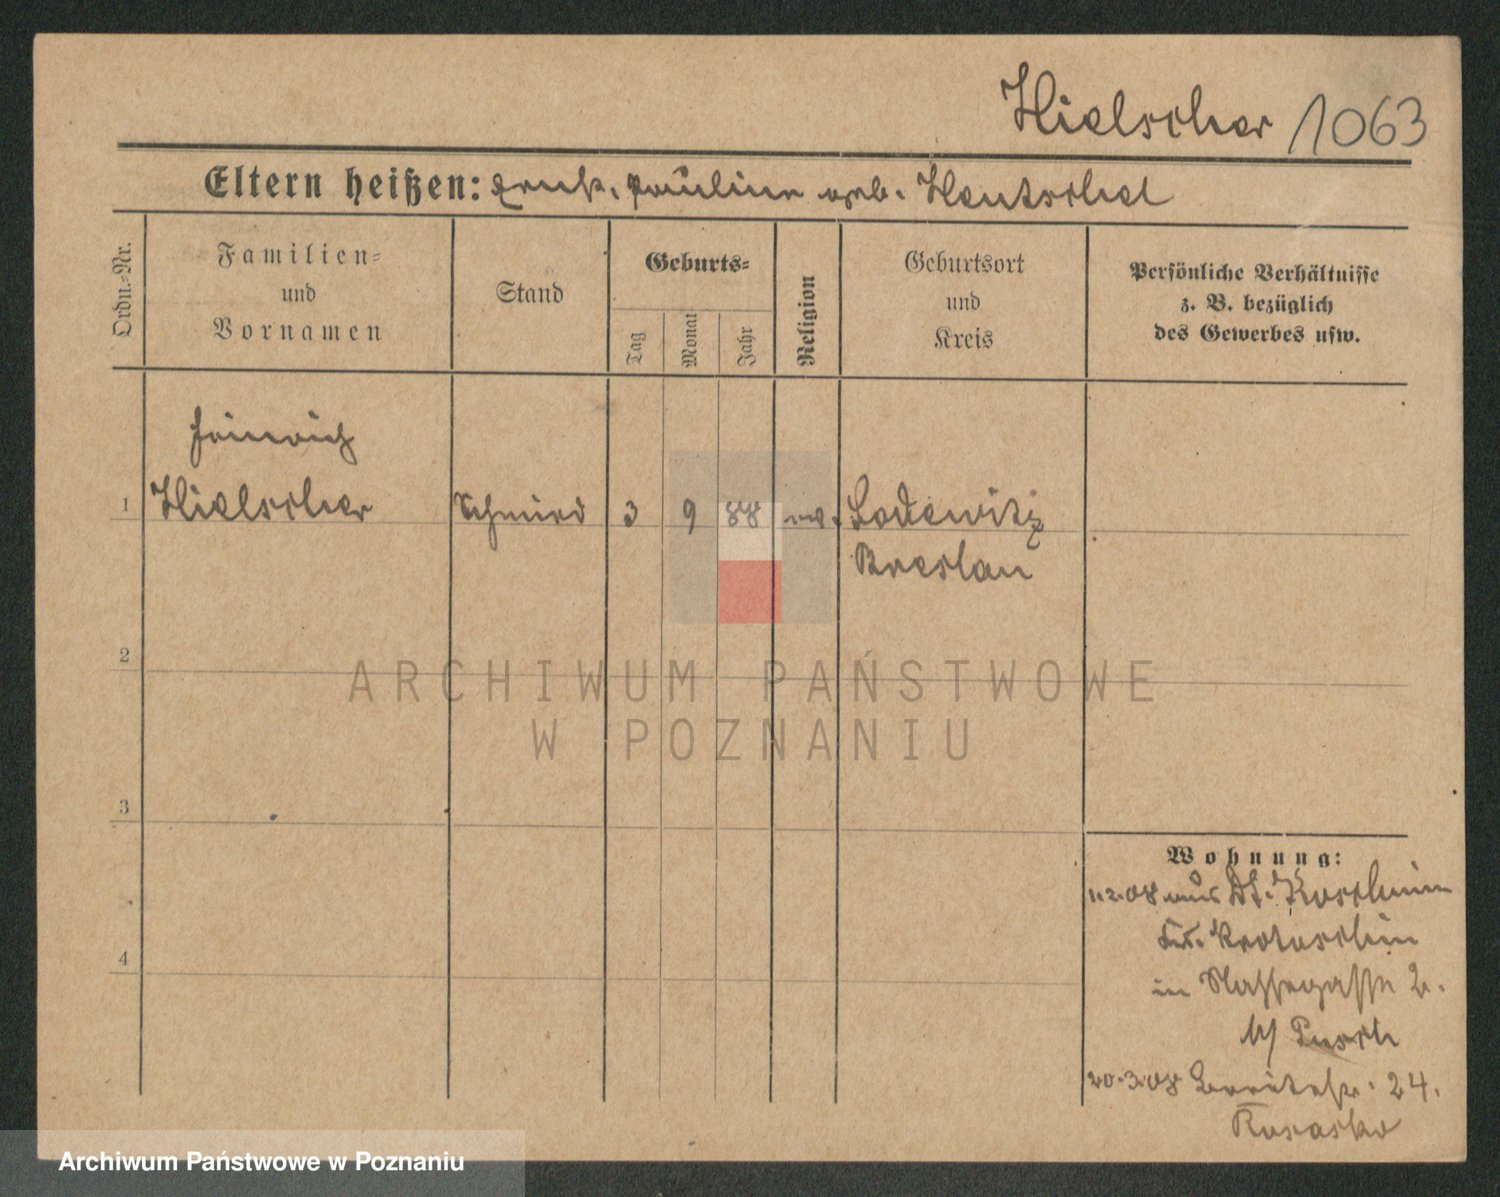 Hielscher 1063
Eltern heißen: Ernst. Pauline geb. Hentschel
Ordn.-Nr.
Familien-
und
Vornamen
Stand
Geburts-
Tag
Monat
Jahr
Religion
Geburtsort
und
Kreis
Persönliche Verhältnisse
z. B. bezüglich
des Gewerbes usw.
Heinrich
1 Hielscher Schmied 3 9 88 ev.
Breslau
2
3
4
Wohnung:
1.2.08 aus Dt. Koschmin
Kr. Krotoschin
in Nassegasse 2.
b/ Pusch
20.3.08 Breitestr. 24.
ARCHIWUM PAŃSTWOWE
W POZNANIU
Archiwum Państwowe w Poznaniu